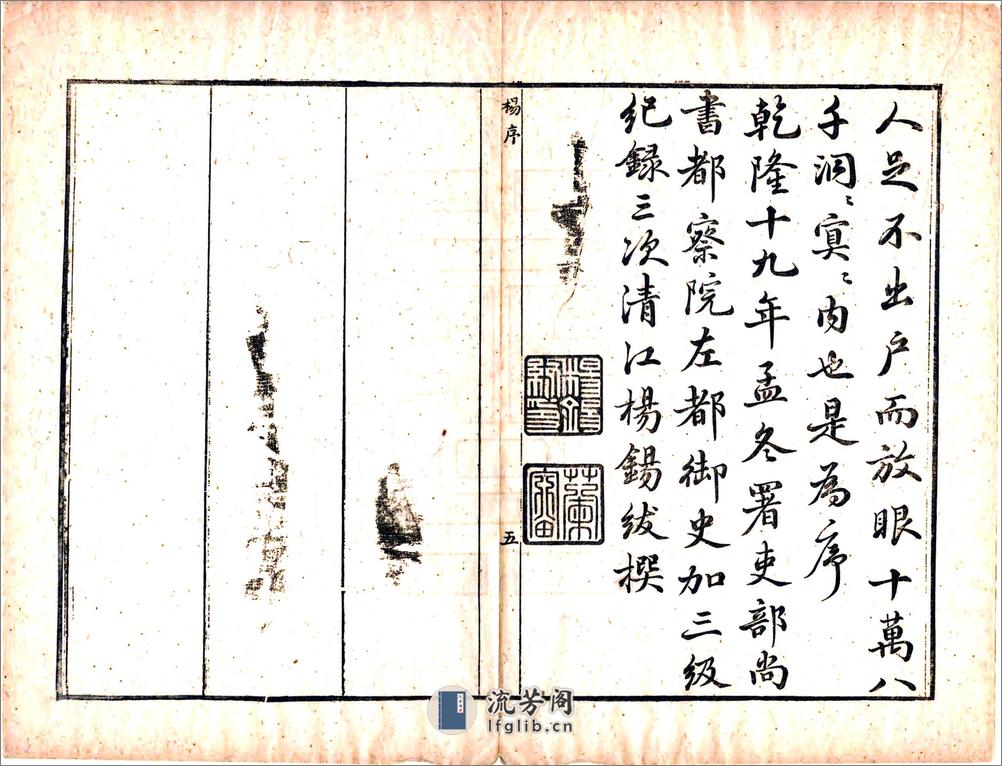 人足不出户而放眼十萬八
千洞〻寞〻内也是為序
乾隆十九年孟冬署吏部尚
書都察院左都御史加三级
紀録三次清江楊錫紱撰
楊序
五
流芳阁
lfglib.cn